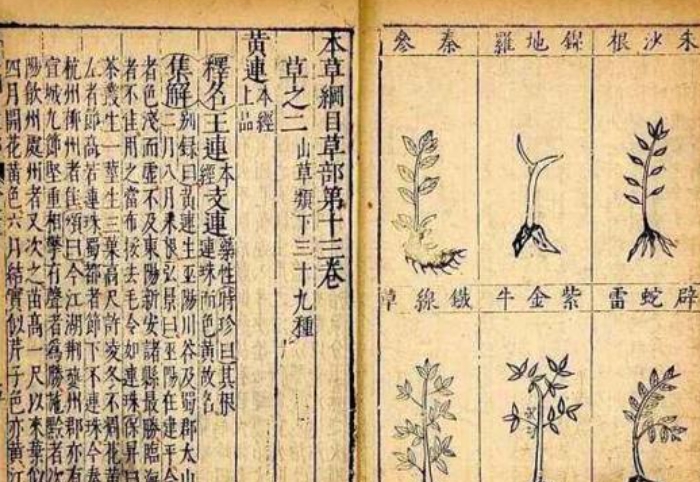 朱沙根
錦地羅
秦參
辟蛇雷
紫金牛
鐵線草
本草綱目草部第十三卷
草之二 山草類下三十九種
黃連 本經上品
釋名 王連 本經 支連 藥性時珍曰其根連珠而色黃故名
集解 別錄曰黃連生巫陽川谷及蜀郡太山
二月八月采根弘景曰巫陽在建平今
者色淺而虛不及東陽新安諸縣最勝臨海
者不佳用之當布挼去毛令如連珠保昇曰
茶叢生一莖生三葉高尺許凌冬不凋花黃
左者節高若連珠蜀都者節下不連珠今秦
杭州柳州者佳頌曰今江湖荊夔州郡亦有
宣城九節堅重相擊有聲者爲勝施黔者次
陽歙州處州者又次之苗高一尺以來葉似
四月開花黃色六月結實似芹子色亦黃江